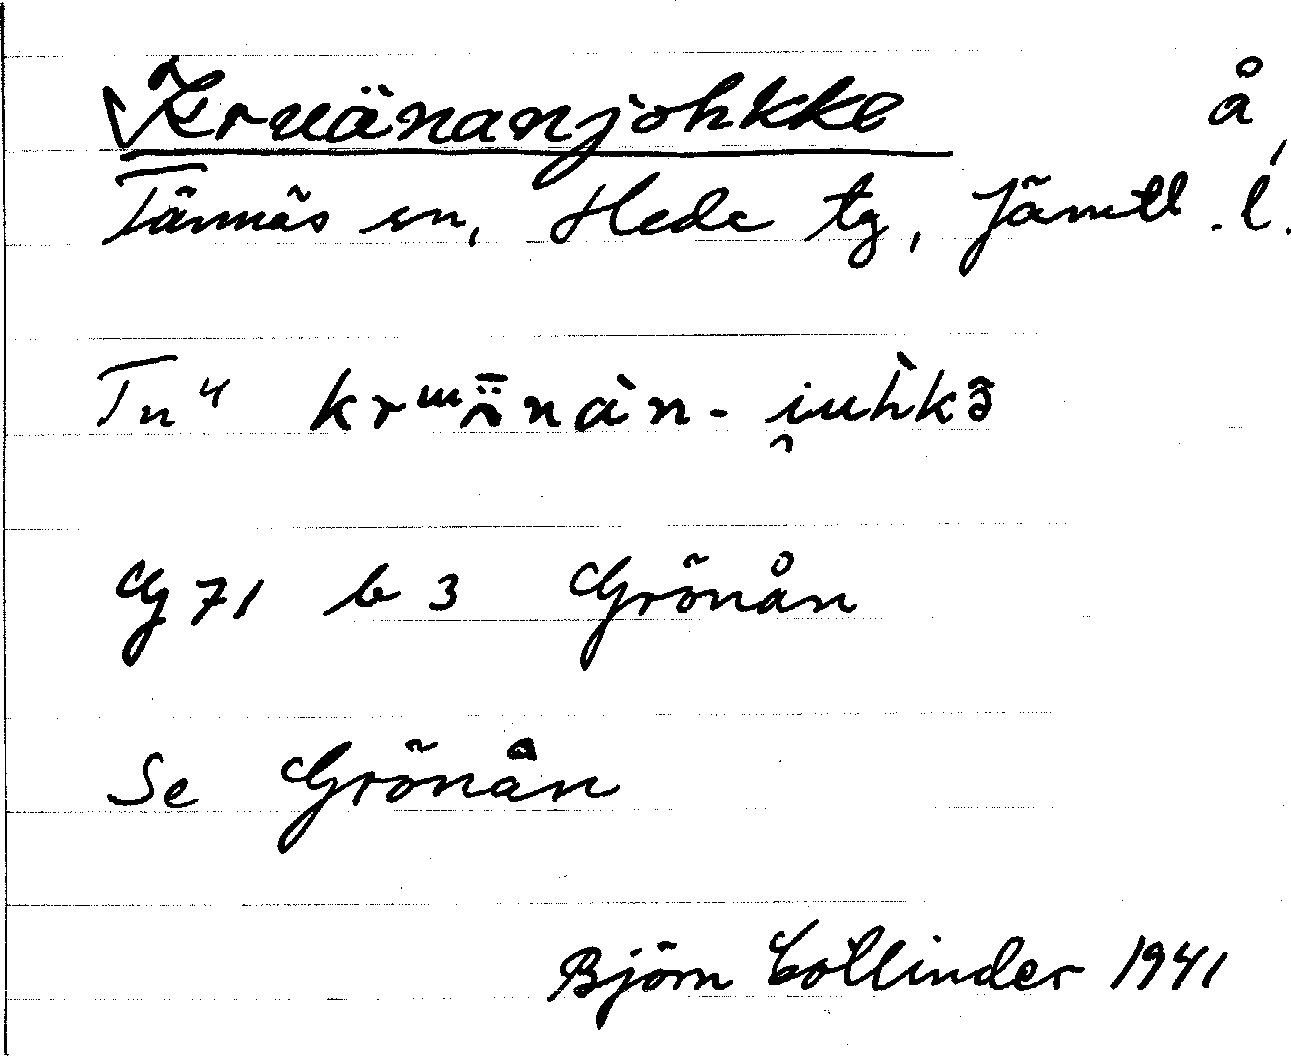 Kruänanjohkke å
Tännäs sn, Hede tg, Jämtl. l.
Tn 4
G 71 b 3 Grönån
Se Grönån
Björn Collinder 1941